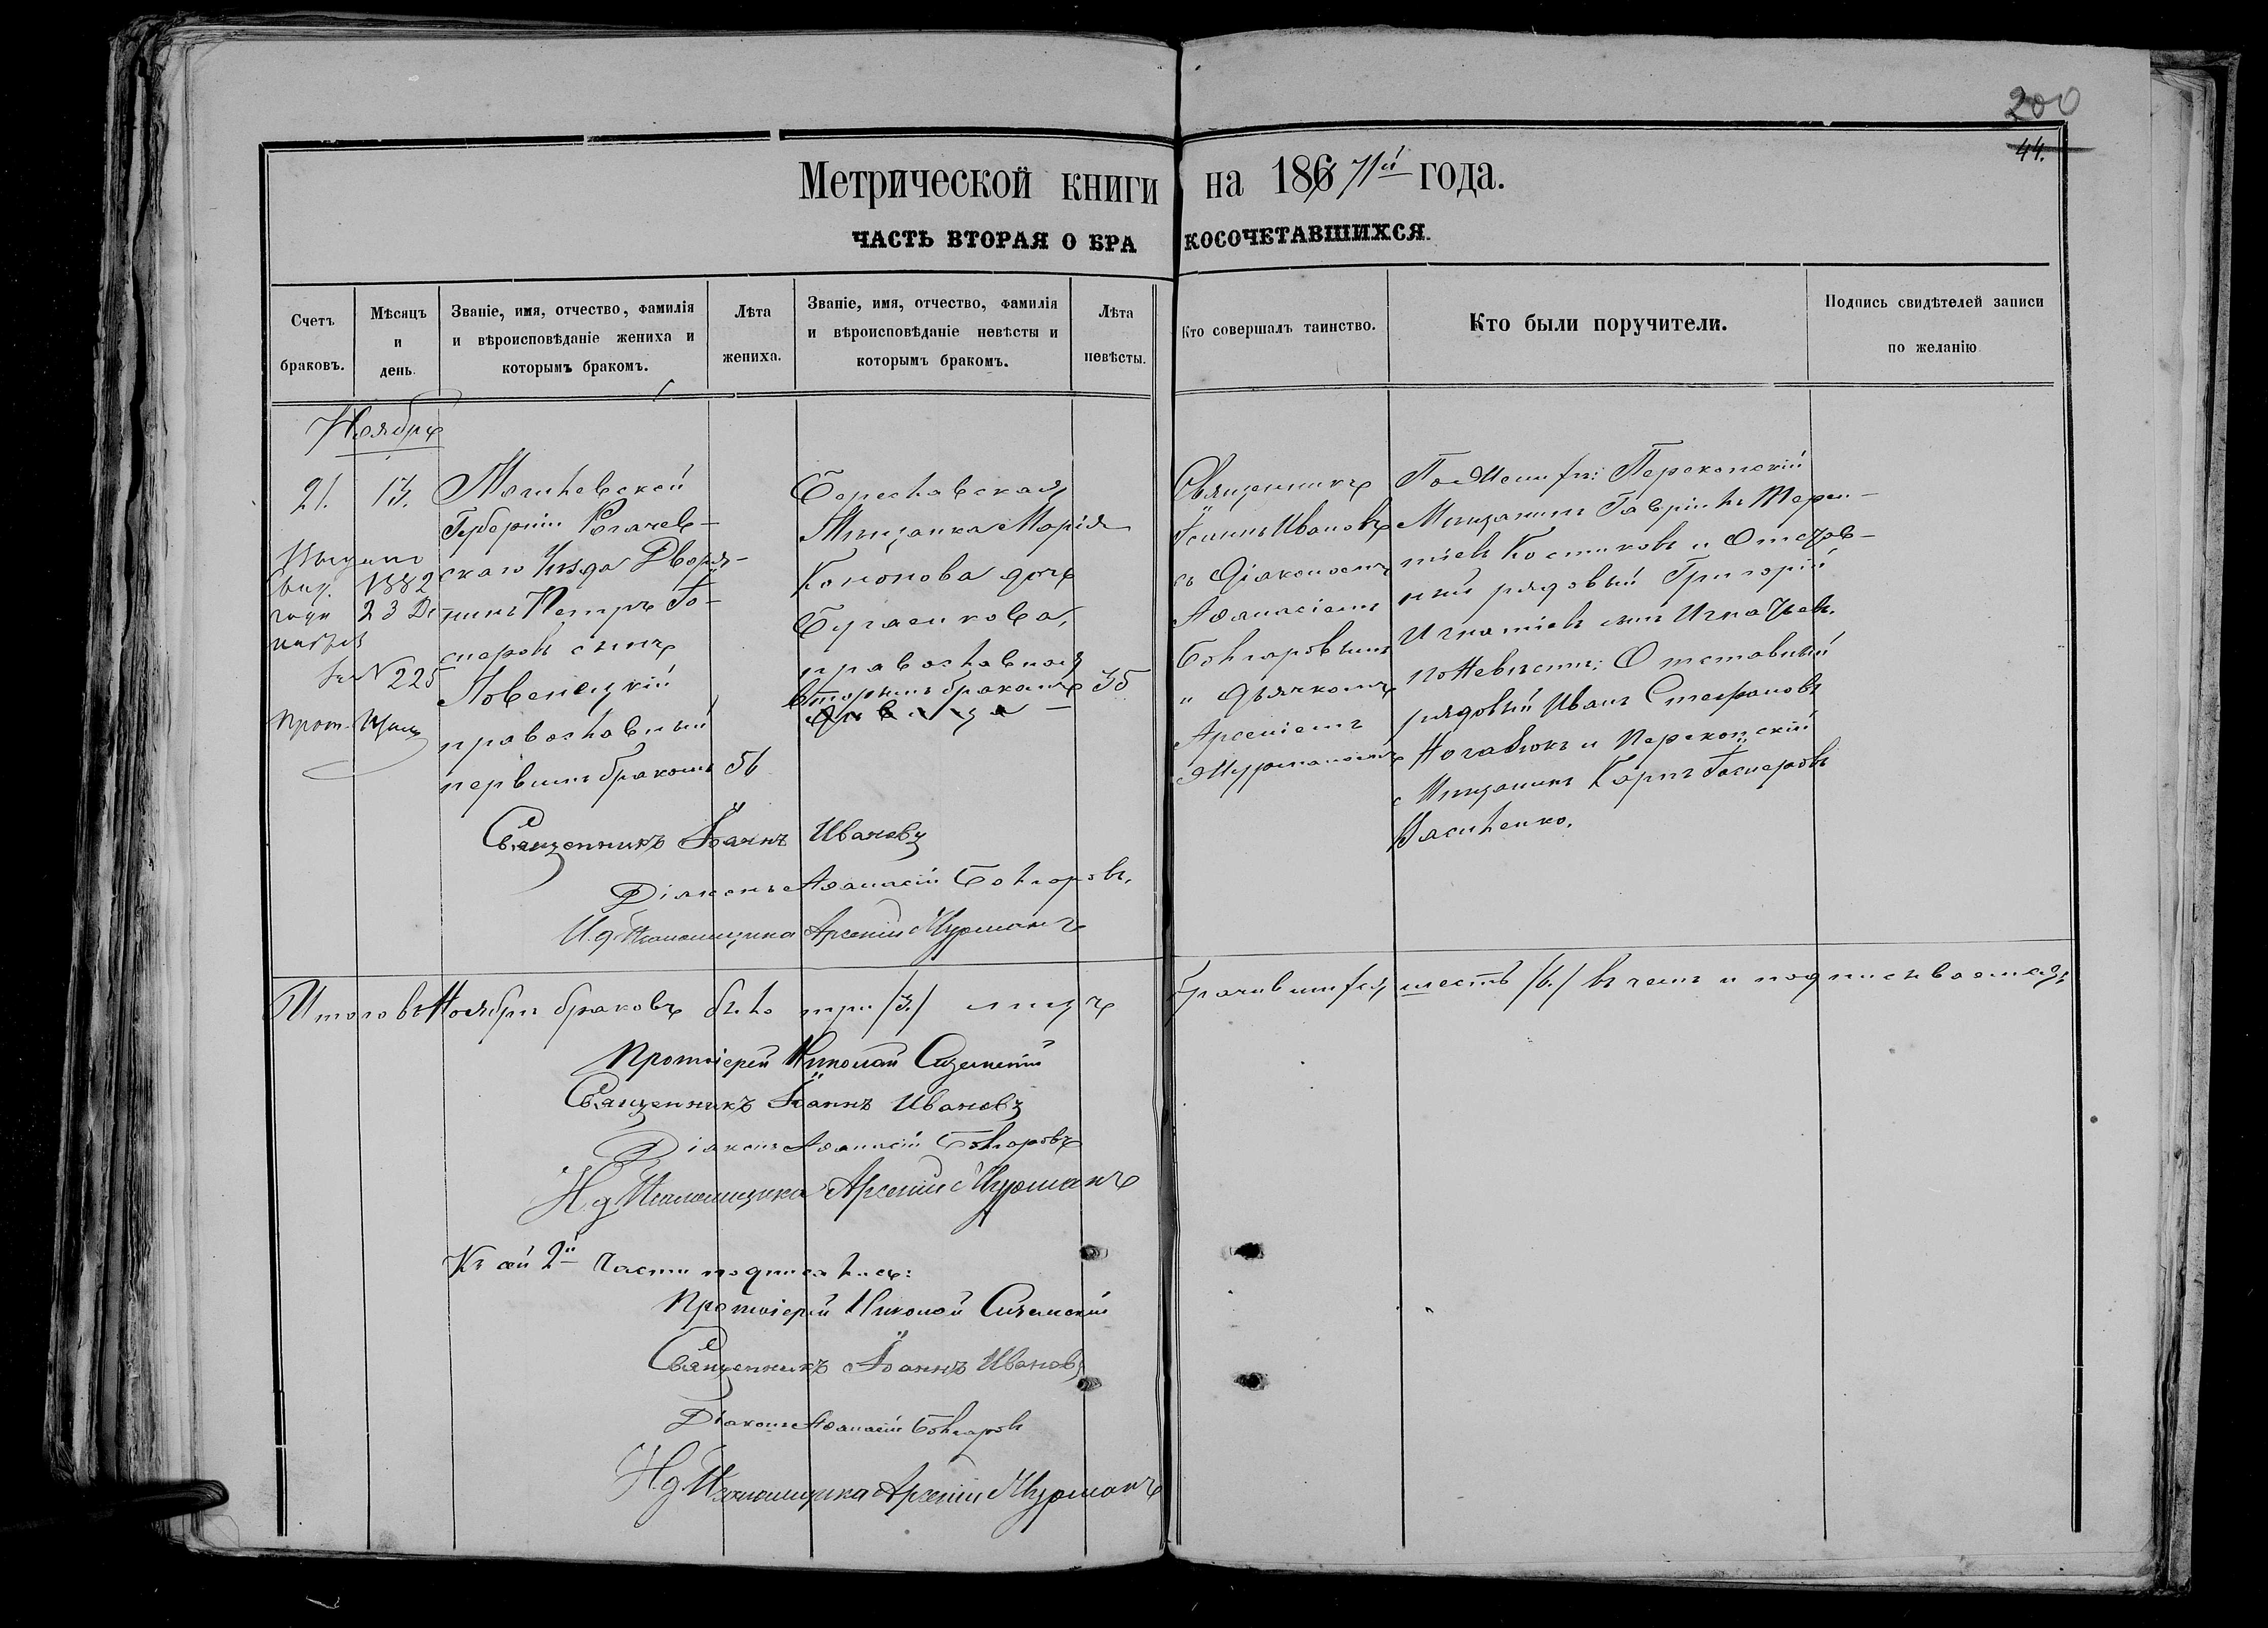 200
44.
Метрической книги на 1867/1й года.
ЧАСТЬ ВТОРАЯ О БРАКОСОЧЕТАВШИХСЯ.
Счетъ браковъ.
Мѣсяцъ и день.
Званіе, имя, отчество, фамилія и вѣроисповѣданіе жениха и которымъ бракомъ.
Лѣта жениха.
Званіе, имя, отчество, фамилія и вѣроисповѣданіе невѣсты и которымъ бракомъ.
Лѣта невѣсты.
Кто совершалъ таинство.
Кто были поручители.
Подпись свидѣтелей записи по желанію
Ноябрь
21.
13.
Выдано
свид. 1882
года 23 Де
за № 225
Прот.
Могилевской
Губерніи Рогачев-
скаго Уѣзда Дворя-
нинъ Петръ Го-
сперовъ сынъ
Повенецкій
православный
первымъ бракомъ
56
Береславская
Мѣщанка Марія
Кононова дочь
Бугаенкова,
православная
вторымъ бракомъ
35
девица
Священникъ
Іоаннъ Ивановъ
съ Діакономъ
Афанасіемъ
Болгаровымъ
и Дьячкомъ
Арсеніемъ
Мурманомъ
По Жениху: Перекопскій
Мѣщанинъ Гавріилъ Терен-
тіевъ Костиковъ и Отстав-
ный рядовый Григорій
Игнатіевъ сынъ Игнатьев.
по Невѣсте: Отставный
рядовый Иванъ Стефановъ
Ногавюкъ и Перекопскій
Мѣщанинъ Карпъ Госперовъ
Василенко.
Священникъ Іоаннъ Ивановъ
Діаконъ Афанасій Болгаровъ.
И. д. Псаломщика Арсеній Мурманъ
Итого въ Ноябрѣ браковъ было три /3/ лицъ брачившихся шесть /6./ въ чемъ и подписываемся:
Протоіерей Николай
Священникъ Іоаннъ Ивановъ
Діаконъ Афанасій Болгаровъ
И. д. Псаломщика Арсеній Мурманъ
Къ сей 2й части подписались:
Протоіерей Николай
Священникъ Іоаннъ Ивановъ
Діаконъ Афанасій Болгаровъ
И. д. Псаломщика Арсеній Мурманъ